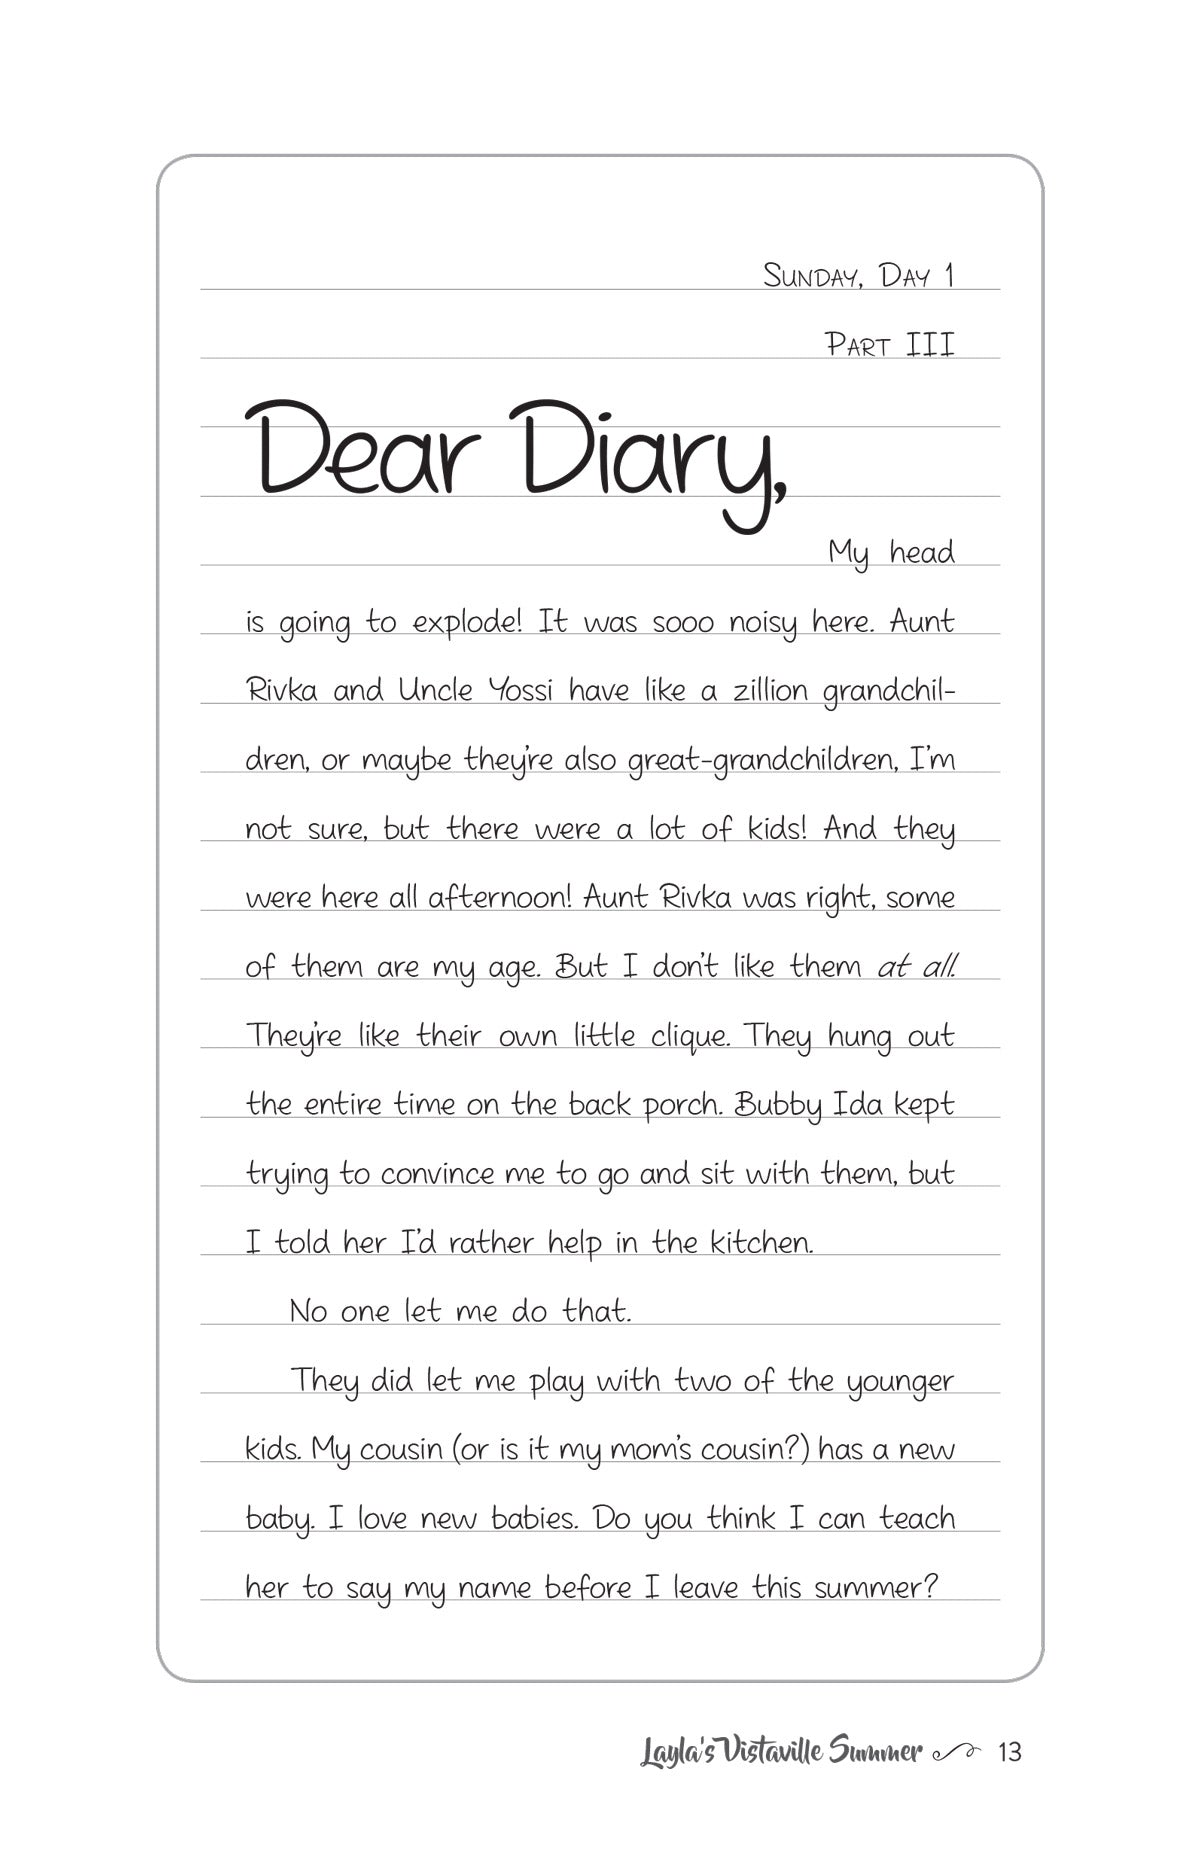 Sunday, Day 1
Part III
Dear Diary,
My head
is going to explode! It was sooo noisy here. Aunt
Rivka and Uncle Yossi have like a zillion grandchil-
dren, or maybe they're also great-grandchildren, I'm
not sure, but there were a lot of kids! And they
were here all afternoon! Aunt Rivka was right, some
of them are my age. But I don't like them at all.
They're like their own little clique. They hung out
the entire time on the back porch. Bubby Ida kept
trying to convince me to go and sit with them, but
I told her I'd rather help in the kitchen.
No one let me do that.
They did let me play with two of the younger
kids. My cousin (or is it my mom's cousin?) has a new
baby. I love new babies. Do you think I can teach
her to say my name before I leave this summer?
Layla's Vistaville Summer 13